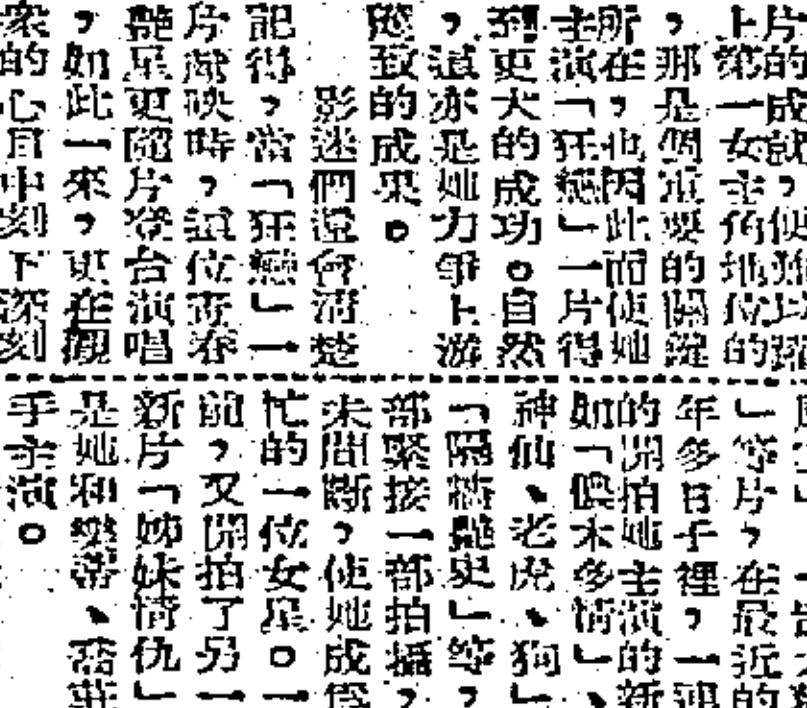 片的成就，便難以躋
上第一女主角地位的
，那是個重要的關鍵
所在，也因此而使她
主演「狂戀」一片得
到更大的成功。自然
，這亦是她力爭上游
致的成果。
影迷們還會清楚
記得，當「狂戀」一
片獻映時，這位青春
艷星更隨片登台演唱
，如此一來，更在觀
眾的心目中刻下深刻
」等片，在最近的
年多日子裡，一連
的開拍她主演的新
如「木多情」、
神仙、老虎、狗」
「隔牆艷史」等，
部緊接一部拍攝，
未間斷，使她成為
忙的一位女星。一
前，又開拍了另一
新片「姊妹情仇」
是她和樂蒂、喬莊
手主演。